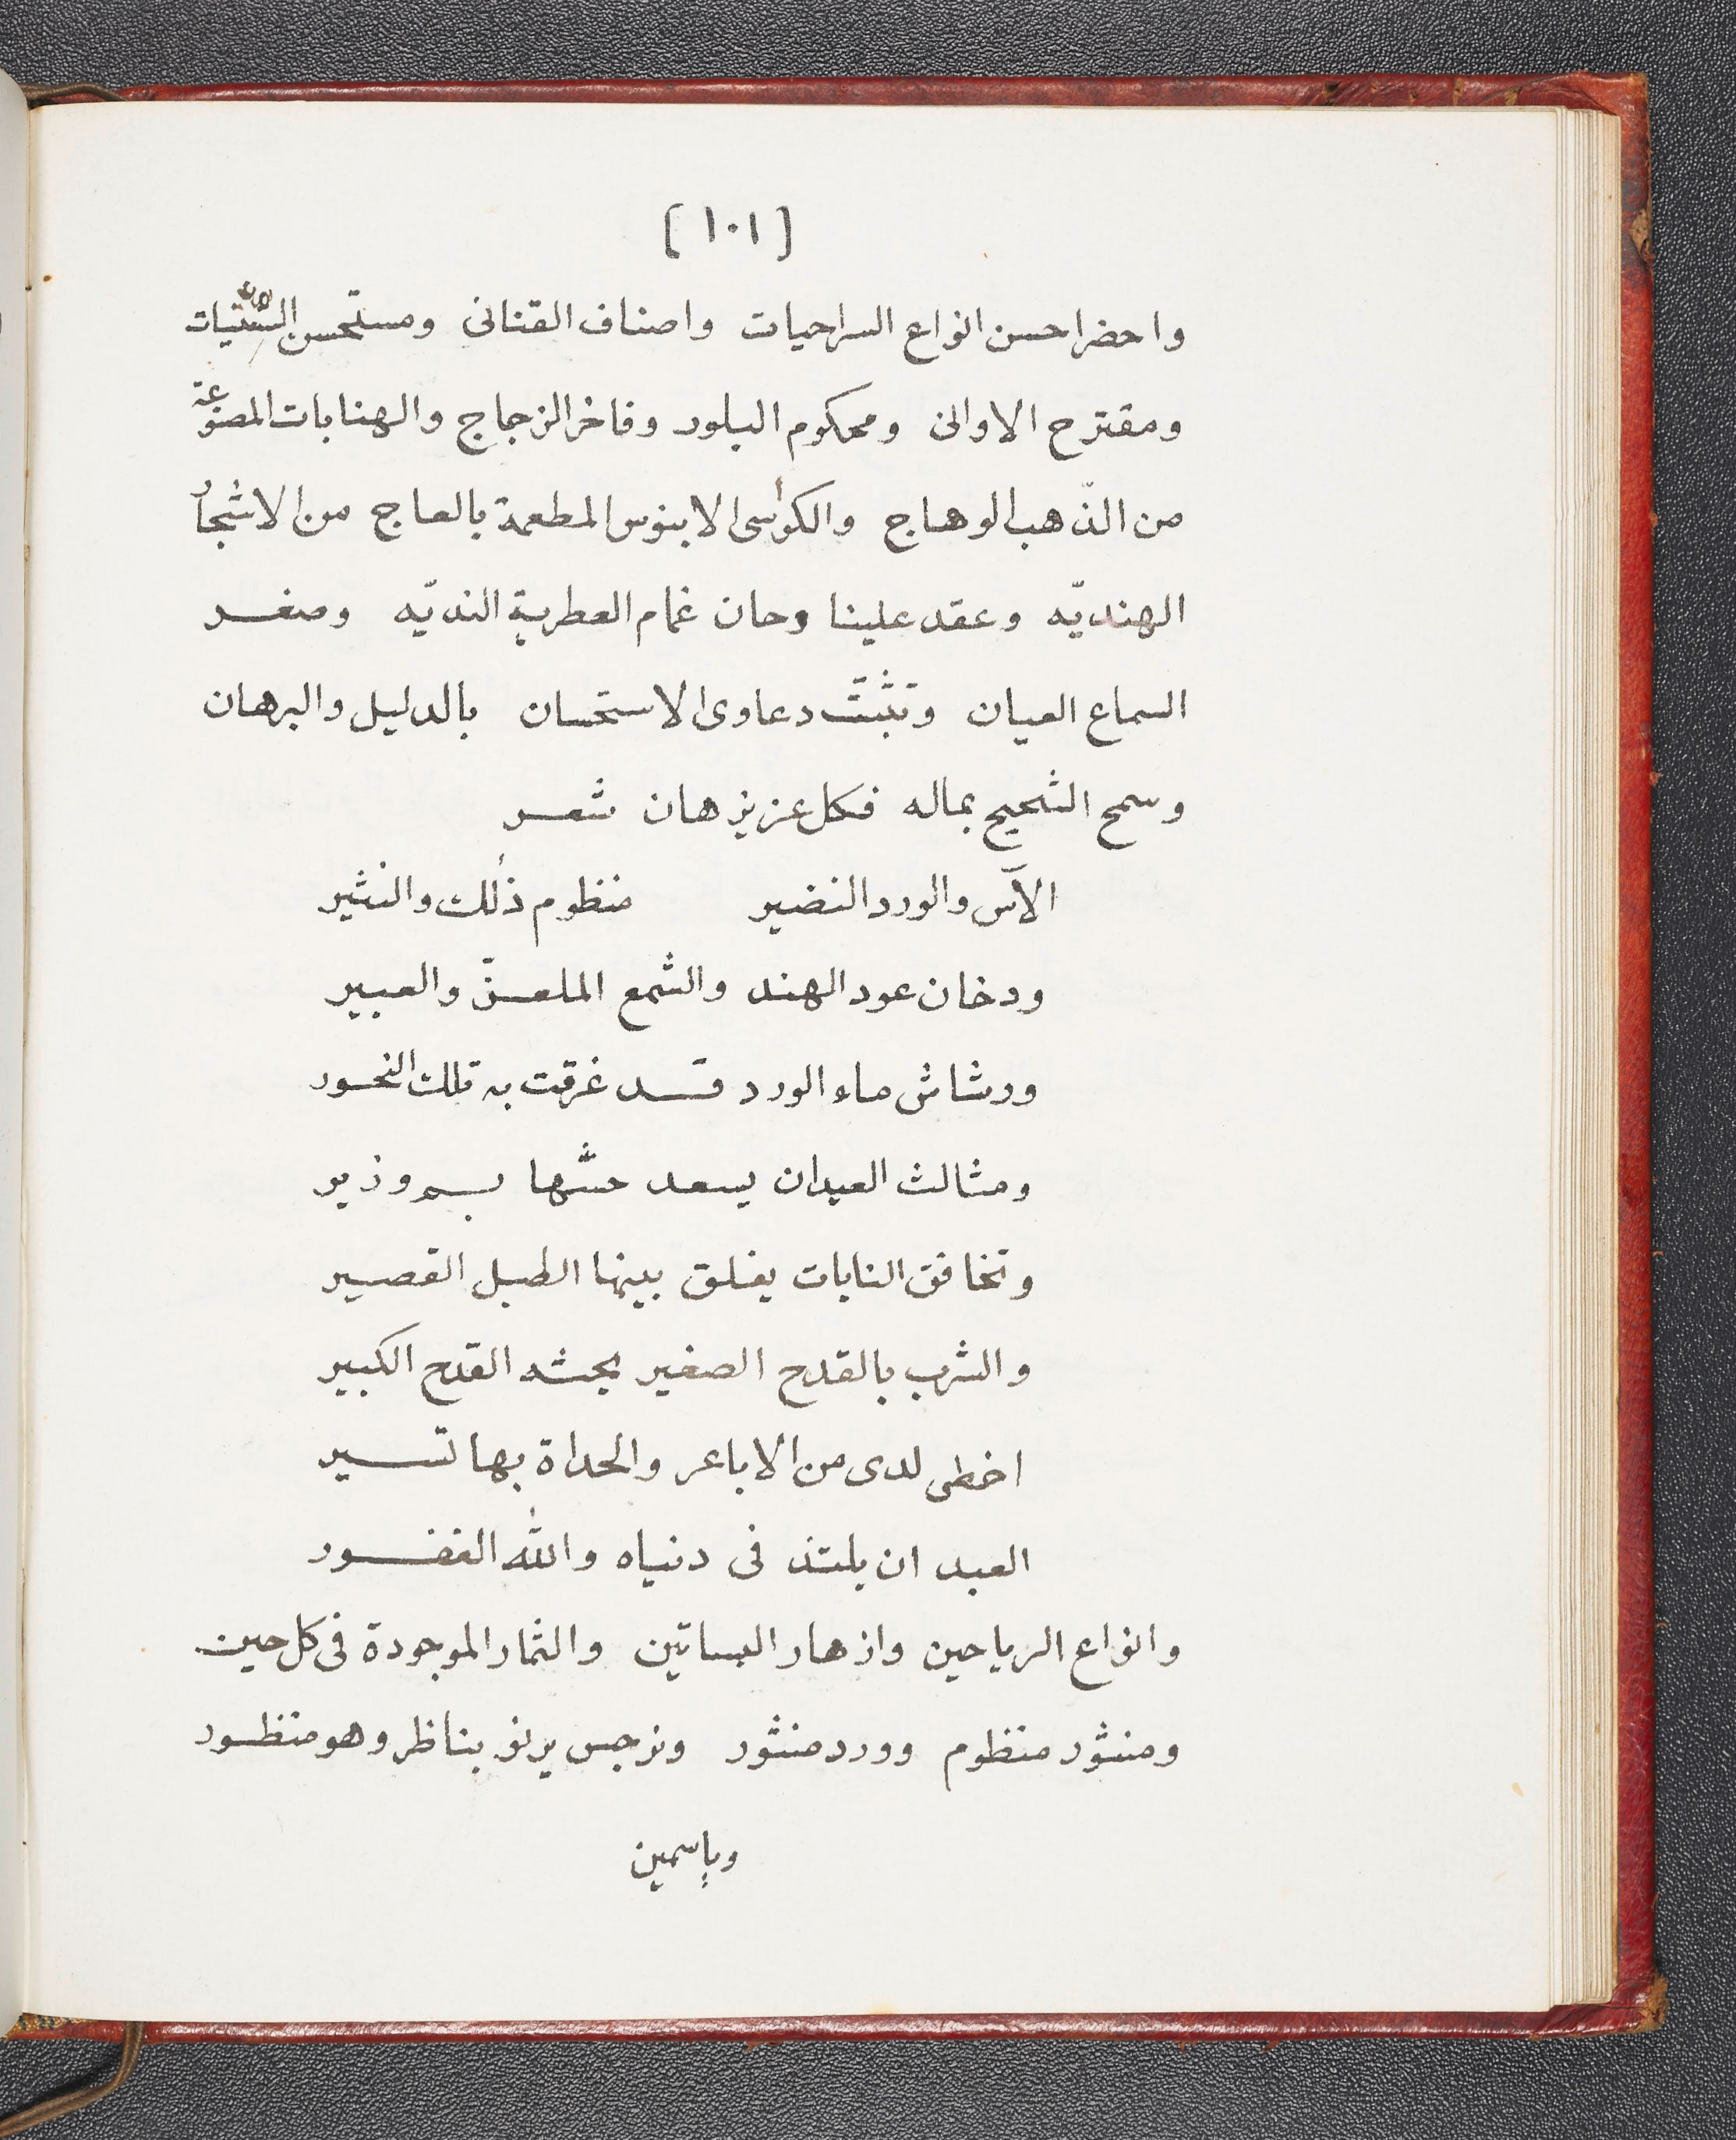 [١٠١]
واحضر احسن انواع السراحيات واصناف القنانى ومستحسن
ومقترح الاوانى ومحكوم البلور وفاخر الزجاج والهنابات المصنوعة
من الذّهب الوهاج والكراسى الابنوس المطعمة بالعاج من الاشجار
الهنديّه وعقد علينا وحان غمام العطرية النديّه وصغر
السماع العيان وتثبّت دعاوى الاستحسان بالدليل والبرهان
وسمح الشحيح بماله فكل عزيز هان شعر
الآس والورد النضير منظوم ذلك والنثير
ودخان عود الهند والشمع الملعـق والعبير
ورشاش ماء الورد قد غرقت به تلك النحور
ومثالث العيدان يسعد حسّها بم وزير
وتخافق النايات يغلق بينها الطبل القصير
والشرب بالقدح الصغير يحثه القدح الكبير
اخطى لدى من الاباعر والحداة بها تسير
العبد ان يلتذ فى دنياه والله الغفور
وانواع الرياحين وازهار البساتين والثمار الموجودة فى كل حين
ومنثور منظوم وورد منثور ونرجس يرنو بناظر وهو منظور
وياسمين